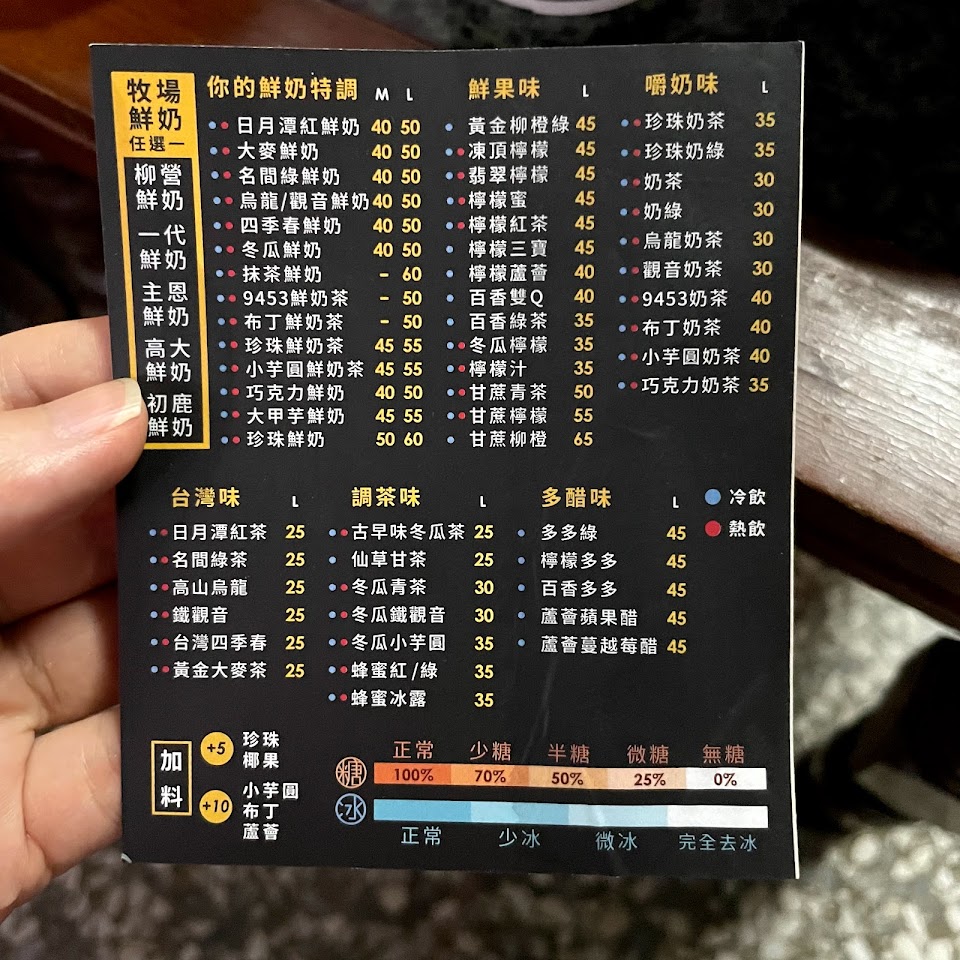 牧場
鮮奶
任選一
柳營
鮮奶
一代
鮮奶
主恩
鮮奶
高大
鮮奶
初鹿
鮮奶
你的鮮奶特調 M L
日月潭紅鮮奶 40 50
大麥鮮奶 40 50
名間綠鮮奶 40 50
烏龍/觀音鮮奶 40 50
四季春鮮奶 40 50
冬瓜鮮奶 40 50
抹茶鮮奶 - 60
9453鮮奶茶 - 50
布丁鮮奶茶 - 50
珍珠鮮奶茶 45 55
小芋圓鮮奶茶 45 55
巧克力鮮奶 40 50
大甲芋鮮奶 45 55
珍珠鮮奶 50 60
鮮果味 L
黃金柳橙綠 45
凍頂檸檬 45
翡翠檸檬 45
檸檬蜜 45
檸檬紅茶 45
檸檬三寶 45
檸檬蘆薈 40
百香雙Q 40
百香綠茶 35
冬瓜檸檬 35
檸檬汁 35
甘蔗青茶 50
甘蔗檸檬 55
甘蔗柳橙 65
嚼奶味 L
珍珠奶茶 35
珍珠奶綠 35
奶茶 30
奶綠 30
烏龍奶茶 30
觀音奶茶 30
9453奶茶 40
布丁奶茶 40
小芋圓奶茶 40
巧克力奶茶 35
台灣味 L
日月潭紅茶 25
名間綠茶 25
高山烏龍 25
鐵觀音 25
台灣四季春 25
黃金大麥茶 25
調茶味 L
古早味冬瓜茶 25
仙草甘茶 25
冬瓜青茶 30
冬瓜鐵觀音 30
冬瓜小芋圓 35
蜂蜜紅/綠 35
蜂蜜冰露 35
多醋味 L
多多綠 45
檸檬多多 45
百香多多 45
蘆薈蘋果醋 45
蘆薈蔓越莓醋 45
冷飲
熱飲
加料
+5 珍珠
椰果
+10 小芋圓
布丁
蘆薈
正常 少糖 半糖 微糖 無糖
糖 100% 70% 50% 25% 0%
冰
正常 少冰 微冰 完全去冰